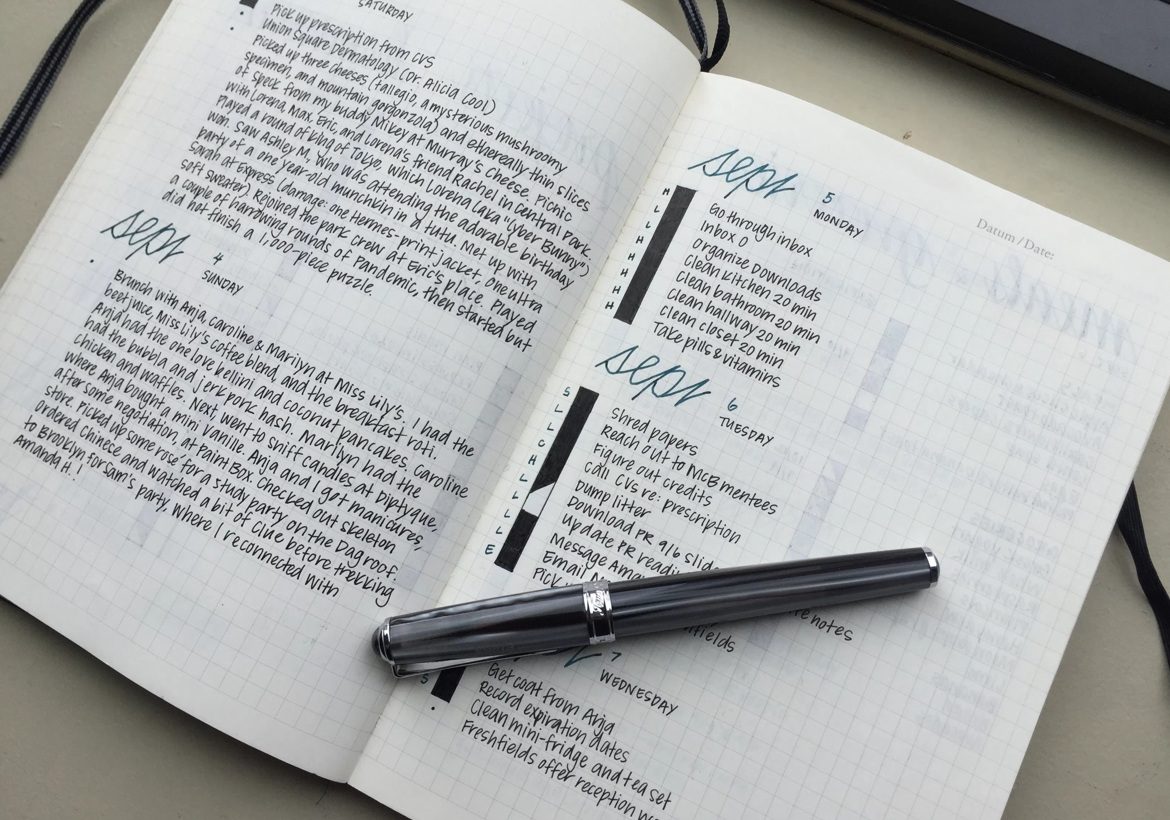 SATURDAY
Pick up prescription from CVS
Union Square Dermatology (Dr. Alicia Cool)
Picked up three cheeses (talegio, a mysterious mushroomy
specimen, and mountain gorgonzola) and ethereally thin slices
of speck from my buddy Mikey at Murray's Cheese. Picnic
with Lorena, Max, Eric, and Lorena's friend Rachel in Central Park.
Played a round of King of Tokyo, which Lorena (aka "Cyber Bunny")
won. Saw Ashley M., who was attending the adorable birthday
party of a one year-old munchkin in a tutu. Met up with
Sarah at Express (damage: one Hermes-print jacket, one ultra
soft sweater) Rejoined the park crew at Eric's place. Played
a couple of harrowing rounds of Pandemic, then started but
did not finish a 1,000 piece puzzle.
sept 4
SUNDAY
Brunch with Anja, Caroline & Marilyn at Miss Lily's. I had the
beet juice, Miss Lily's coffee blend, and the breakfast roti.
Anja had the one love bellini and coconut pancakes. Caroline
had the bubbla and jerk pork hash. Marilyn had the
chicken and waffles. Next, went to sniff candles at Diptyque,
where Anja bought a mini Vanille. Anja and I got manicures,
after some negotiation, at Paint Box. Checked out skeleton
store. Picked up some rosé for a study party on the Dag roof.
Ordered Chinese and watched a bit of Clue before trekking
to Brooklyn for Sam's party, where I reconnected with
Amanda H.!
Datum / Date:
sept 5
MONDAY
M
L
L
H
H
H
H
H
Go through inbox
Inbox 0
Organize Downloads
Clean kitchen 20 min
Clean bathroom 20 min
Clean hallway 20 min
Clean closet 20 min
Take pills & vitamins
sept 6
TUESDAY
S
L
L
C
H
L
L
L
L
E
Shred papers
Reach out to NCB mentees
Figure out credits
Call CVS re: prescription
Dump litter
Download PR 9/6 slide
Update PR readi
Message Ama
Email
Pick
re notes
hfields
7
WEDNESDAY
S
Get coat from Anja
Record expiration dates
Clean mini-fridge and tea set
Freshfields offer reception